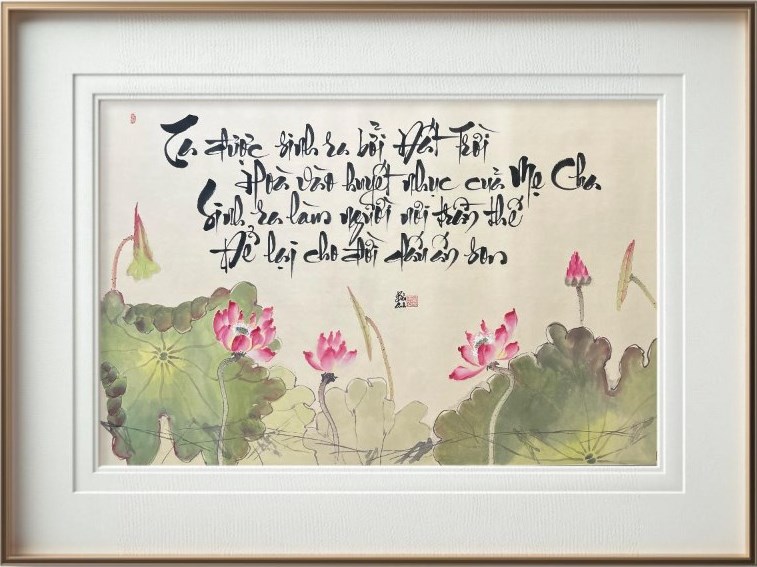 Ta được sinh ra bởi Đất Trời
Hoà vào huyết nhục của Mẹ Cha
Sinh ra làm người nơi trần thế
Để lại cho đời dấu ấn son